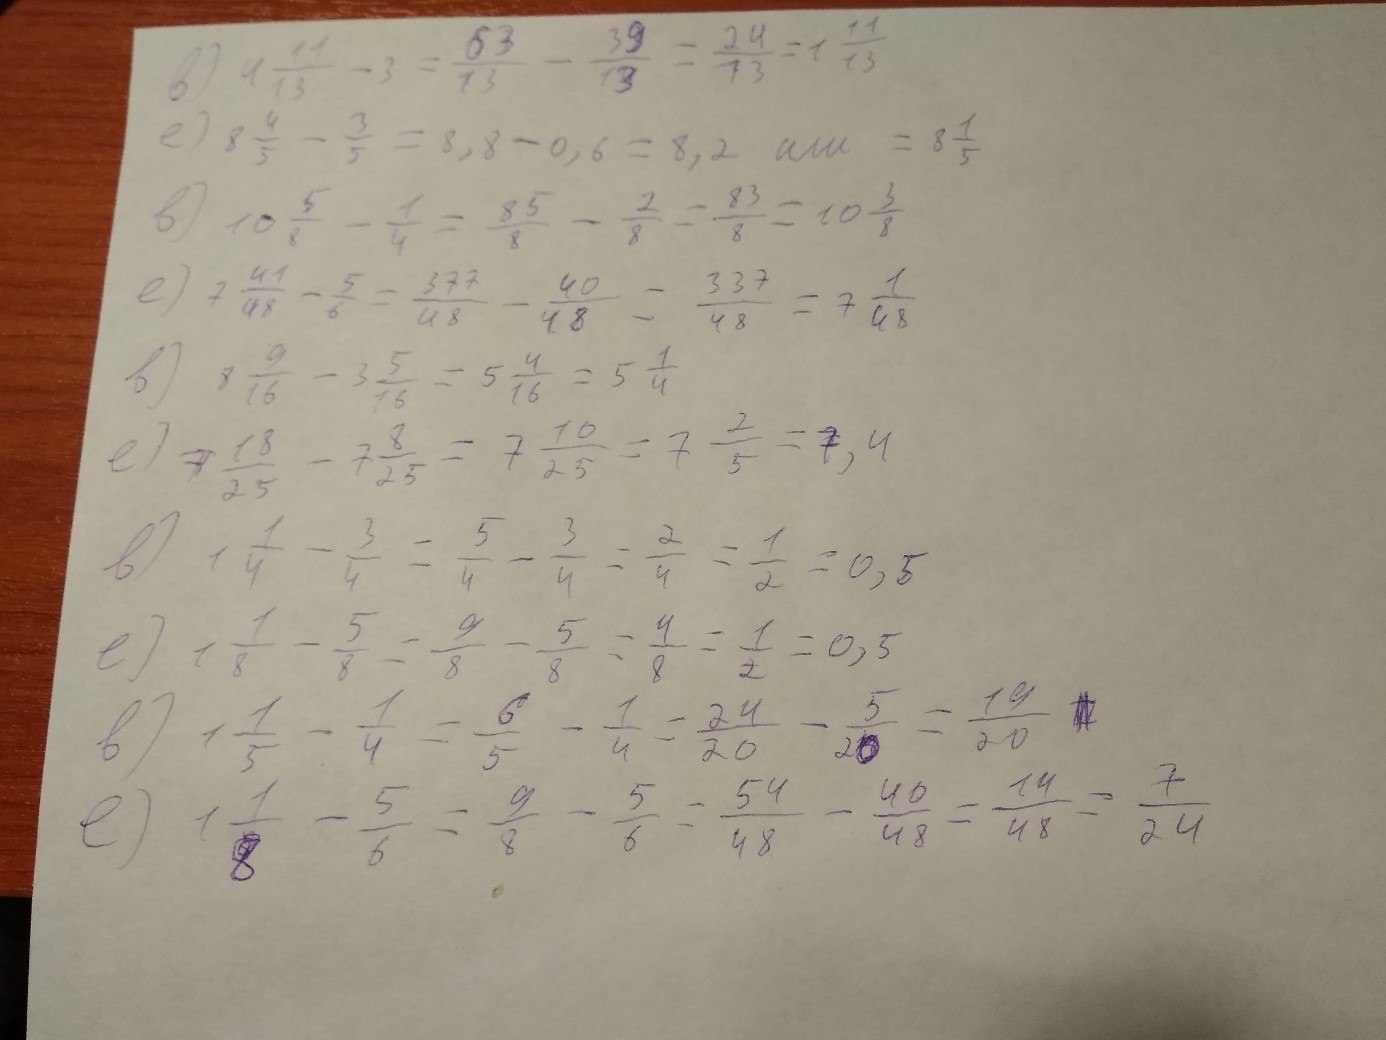 в) 4 11/13 - 3 = 63/13 - 39/13 = 24/13 = 1 11/13
е) 8 4/5 - 3/5 = 8,8 - 0,6 = 8,2 или = 8 1/5
в) 10 5/8 - 1/4 = 85/8 - 2/8 = 83/8 = 10 3/8
е) 7 41/48 - 5/6 = 377/48 - 40/48 = 337/48 = 7 1/48
в) 8 9/16 - 3 5/16 = 5 4/16 = 5 1/4
е) 7 18/25 - 7 8/25 = 7 10/25 = 7 2/5 = 7,4
в) 1 1/4 - 3/4 = 5/4 - 3/4 = 2/4 = 1/2 = 0,5
е) 1 1/8 - 5/8 = 9/8 - 5/8 = 4/8 = 1/2 = 0,5
в) 1 1/5 - 1/4 = 6/5 - 1/4 = 24/20 - 5/20 = 19/20
е) 1 1/8 - 5/6 = 9/8 - 5/6 = 54/48 - 40/48 = 14/48 = 7/24